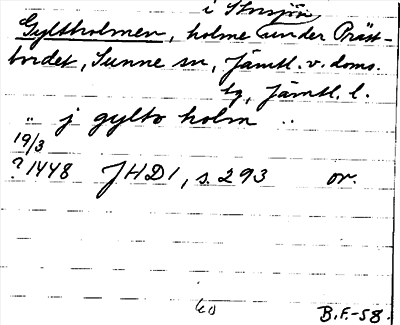 i Storsjön
Gyltholmen, holme under Präst-
bordet, Sunne sn, Jämtl. v. doms.
tg, Jämtl. l.
„ j gylto holm „
19/3
? 1448 JHD 1, s. 293 or.
B.F.-58.